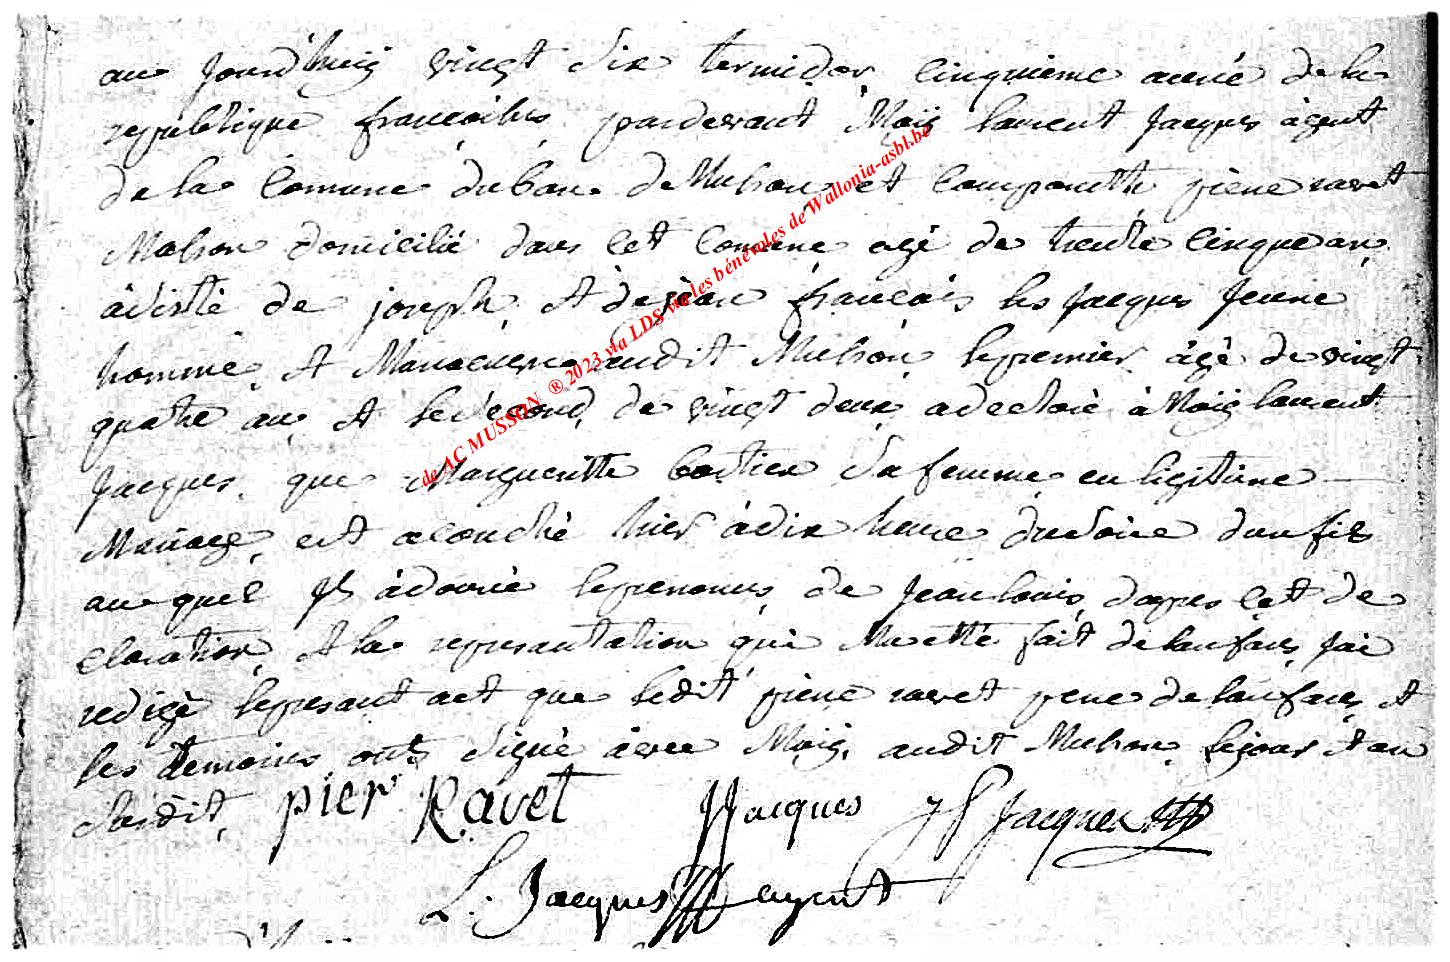 au jourd'huÿ vingt six termidor cinquieme année de la
republique francoises pardevant Moÿ laurent Jacques agent
de la Comune du ban de Musson et Comparuth piere ravet
Masson domicilié dans cet Comune agé de trente cinque an
àsisté de joseph et de jèan françois les Jacques Jeune
homme et Manoeuvre audit Musson le premier àgé de vingt
quatre an et le second de vingt deux a declaré à Moÿ laurent
Jacques que Margueritte sa femme en legitime
Mariage est acouché hier à dix heure du soire d'un fils
au quel Jl à donné le prenoms de Jean louis dapres cet de
claration et la representation qui Ma etté fait de lanfans Jai
redigé le present act que ledit piere ravet pere de lanfans et
les temoins onts signé avec Moÿ audit Musson le jour et an
susdit pier Ravet JJacques JF Jacques
L. Jacques agent
de AC MUSSON ® 2023 via LDS via les bénévoles de Wallonia-asbl.be